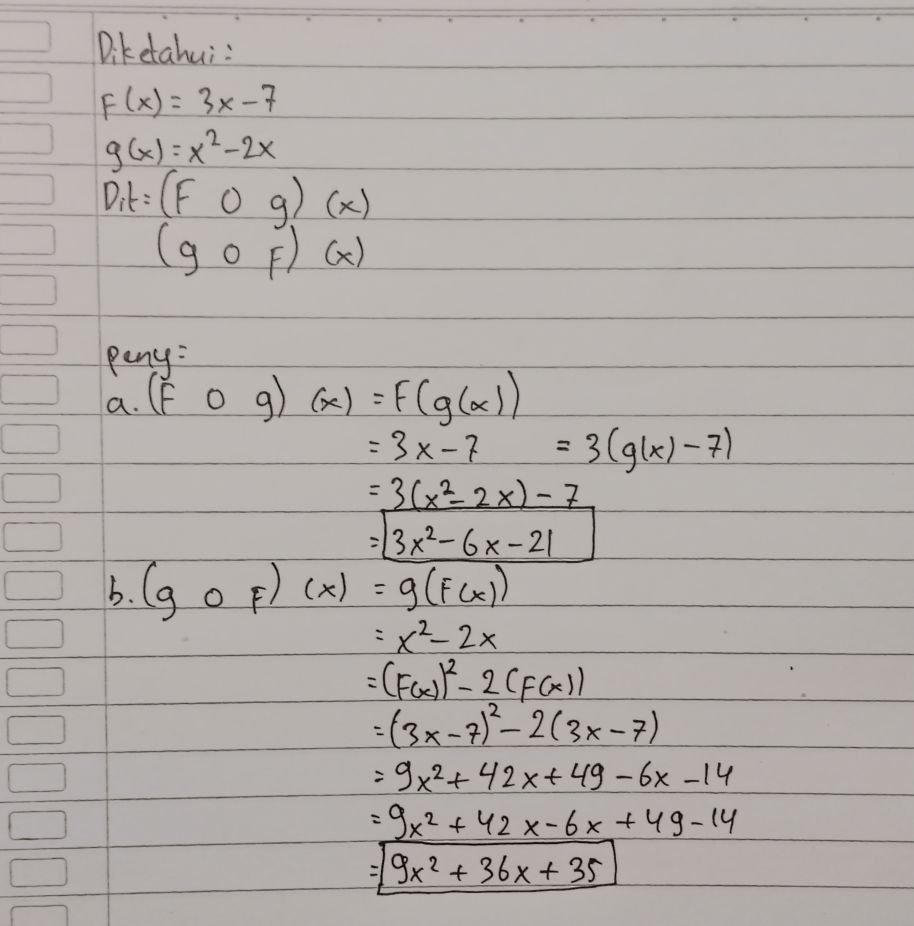 Diketahui:
F(x) = 3x - 7
g(x) = x² - 2x
Dit: (F O g) (x)
(g o F) (x)
peny:
a. (F o g) (x) = F(g(x))
= 3x - 7 = 3(g(x) - 7)
= 3(x² - 2x) - 7
= 3x² - 6x - 21
b. (g o F) (x) = g(F(x))
= x² - 2x
= (F(x))² - 2(F(x))
= (3x - 7)² - 2(3x - 7)
= 9x² + 42x + 49 - 6x - 14
= 9x² + 42x - 6x + 49 - 14
= 9x² + 36x + 35